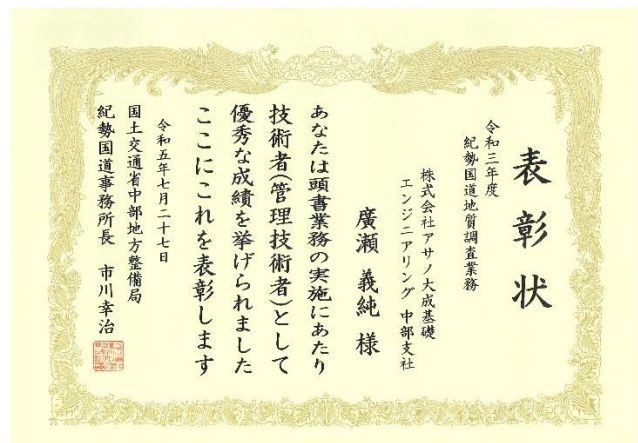 表彰状
令和三年度
紀勢国道地質調査業務
株式会社アサノ大成基礎
エンジニアリング 中部支社
廣瀬 義純 様
あなたは頭書業務の実施にあたり
技術者(管理技術者)として
優秀な成績を挙げられました
ここにこれを表彰します
令和五年七月二十七日
国土交通省中部地方整備局
紀勢国道事務所長 市川幸治